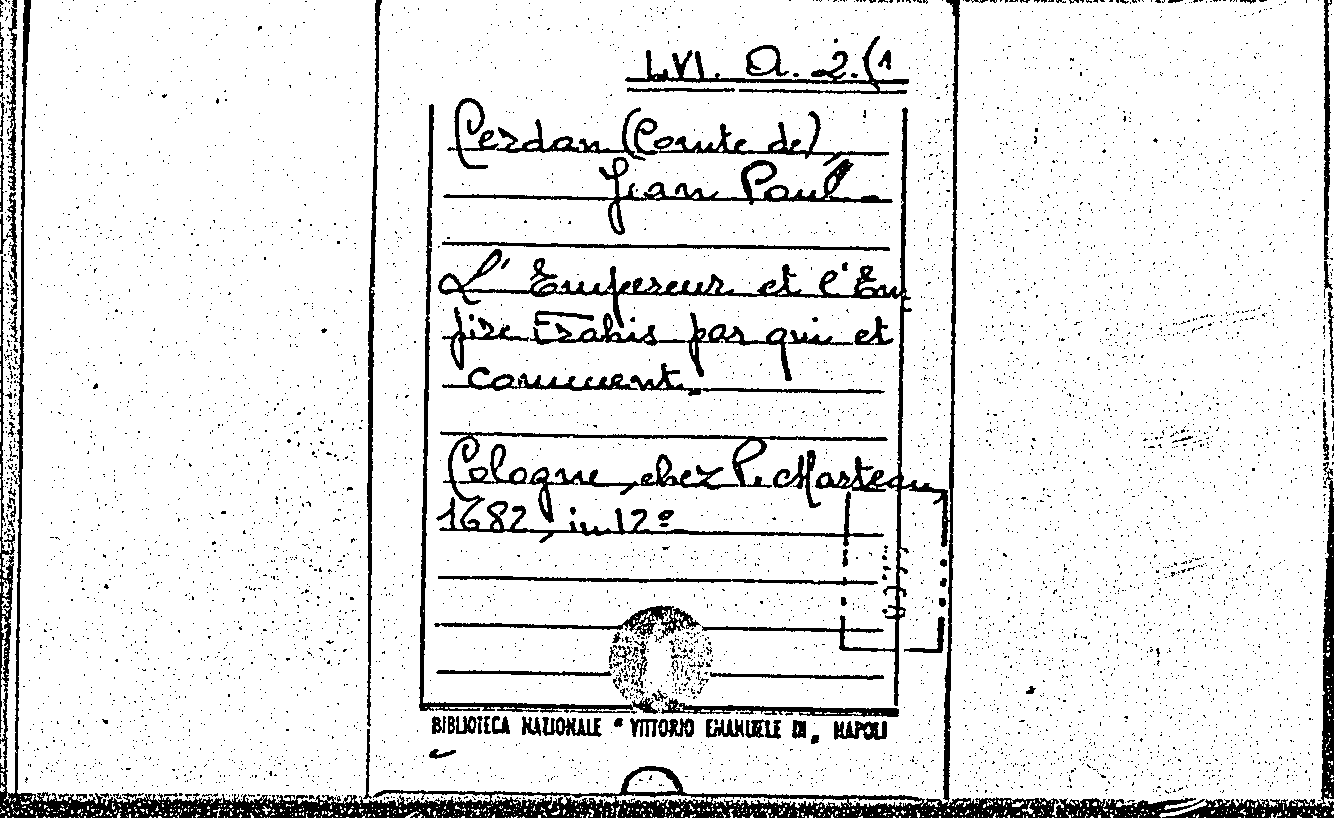 LVI. A. 2.(1
Cerdan (Comte de),
Jean Paul.
L'Empereur et l'Em
pire Trahis par qui et
comment.
Cologne, chez P. Marteau,
1682, in 12º
BIBLIOTECA NAZIONALE " VITTORIO EMANUELE III „ NAPOLI